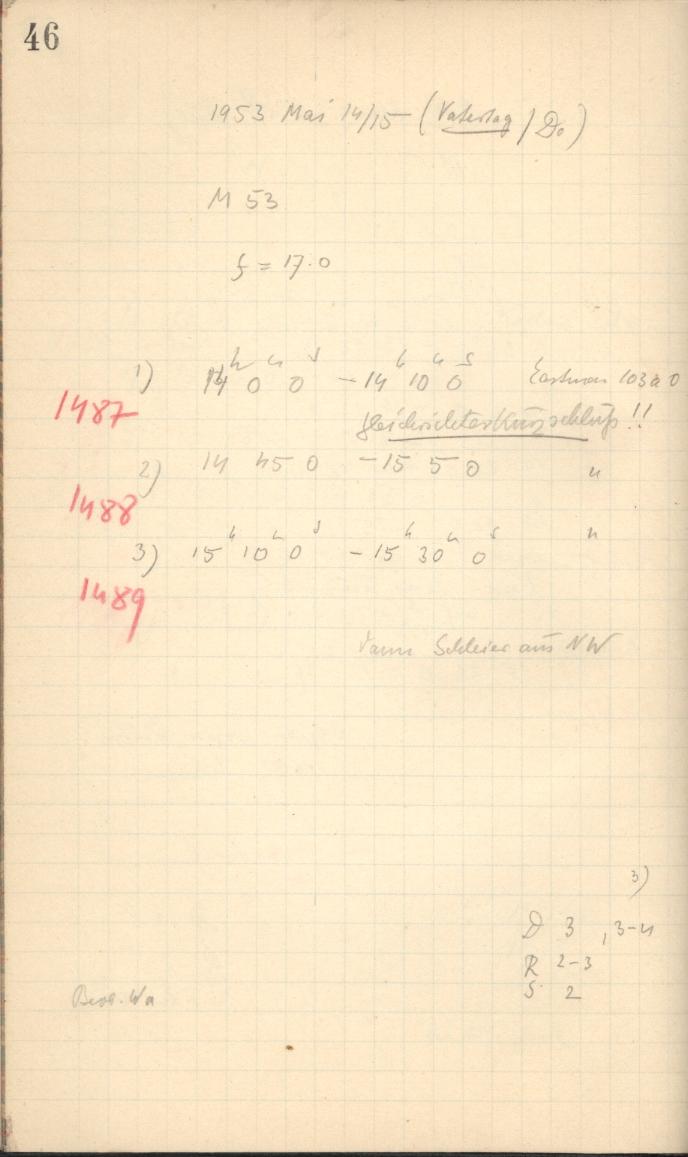 46
1953 Mai 14/15 (Vatertag / Do)
M 53
f = 17.0
1) 14h 0m 0s - 14h 10m 0s Eastman 103a O
1487 Gleichrichterkurzschluß!!
2) 14 45 0 - 15 5 0 "
1488
3) 15h 10m 0s - 15h 30m 0s "
1489
Dann Schleier aus NW
3)
D 3 , 3-4
R 2-3
S 2
Beob. Wa